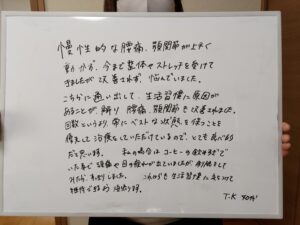 慢性的な腰痛、顎関節が上手く
動かず、今まで整体やストレッチを受けて
きましたが改善されず、悩んでいました。
こちらに通い出して、生活習慣に原因が
あることが解り 腰痛、顎関節も改善されました。
回数というより、常にベストな状態を保つことを
考えて治療をしていただけているので、とても良い
だと思います。 私の場合はコーヒーの飲みすぎで
いた事で 頭痛や目の疲れが出ていましたが、
スッキリしました。 これからも生活習慣に気をつけて
T.K 40代